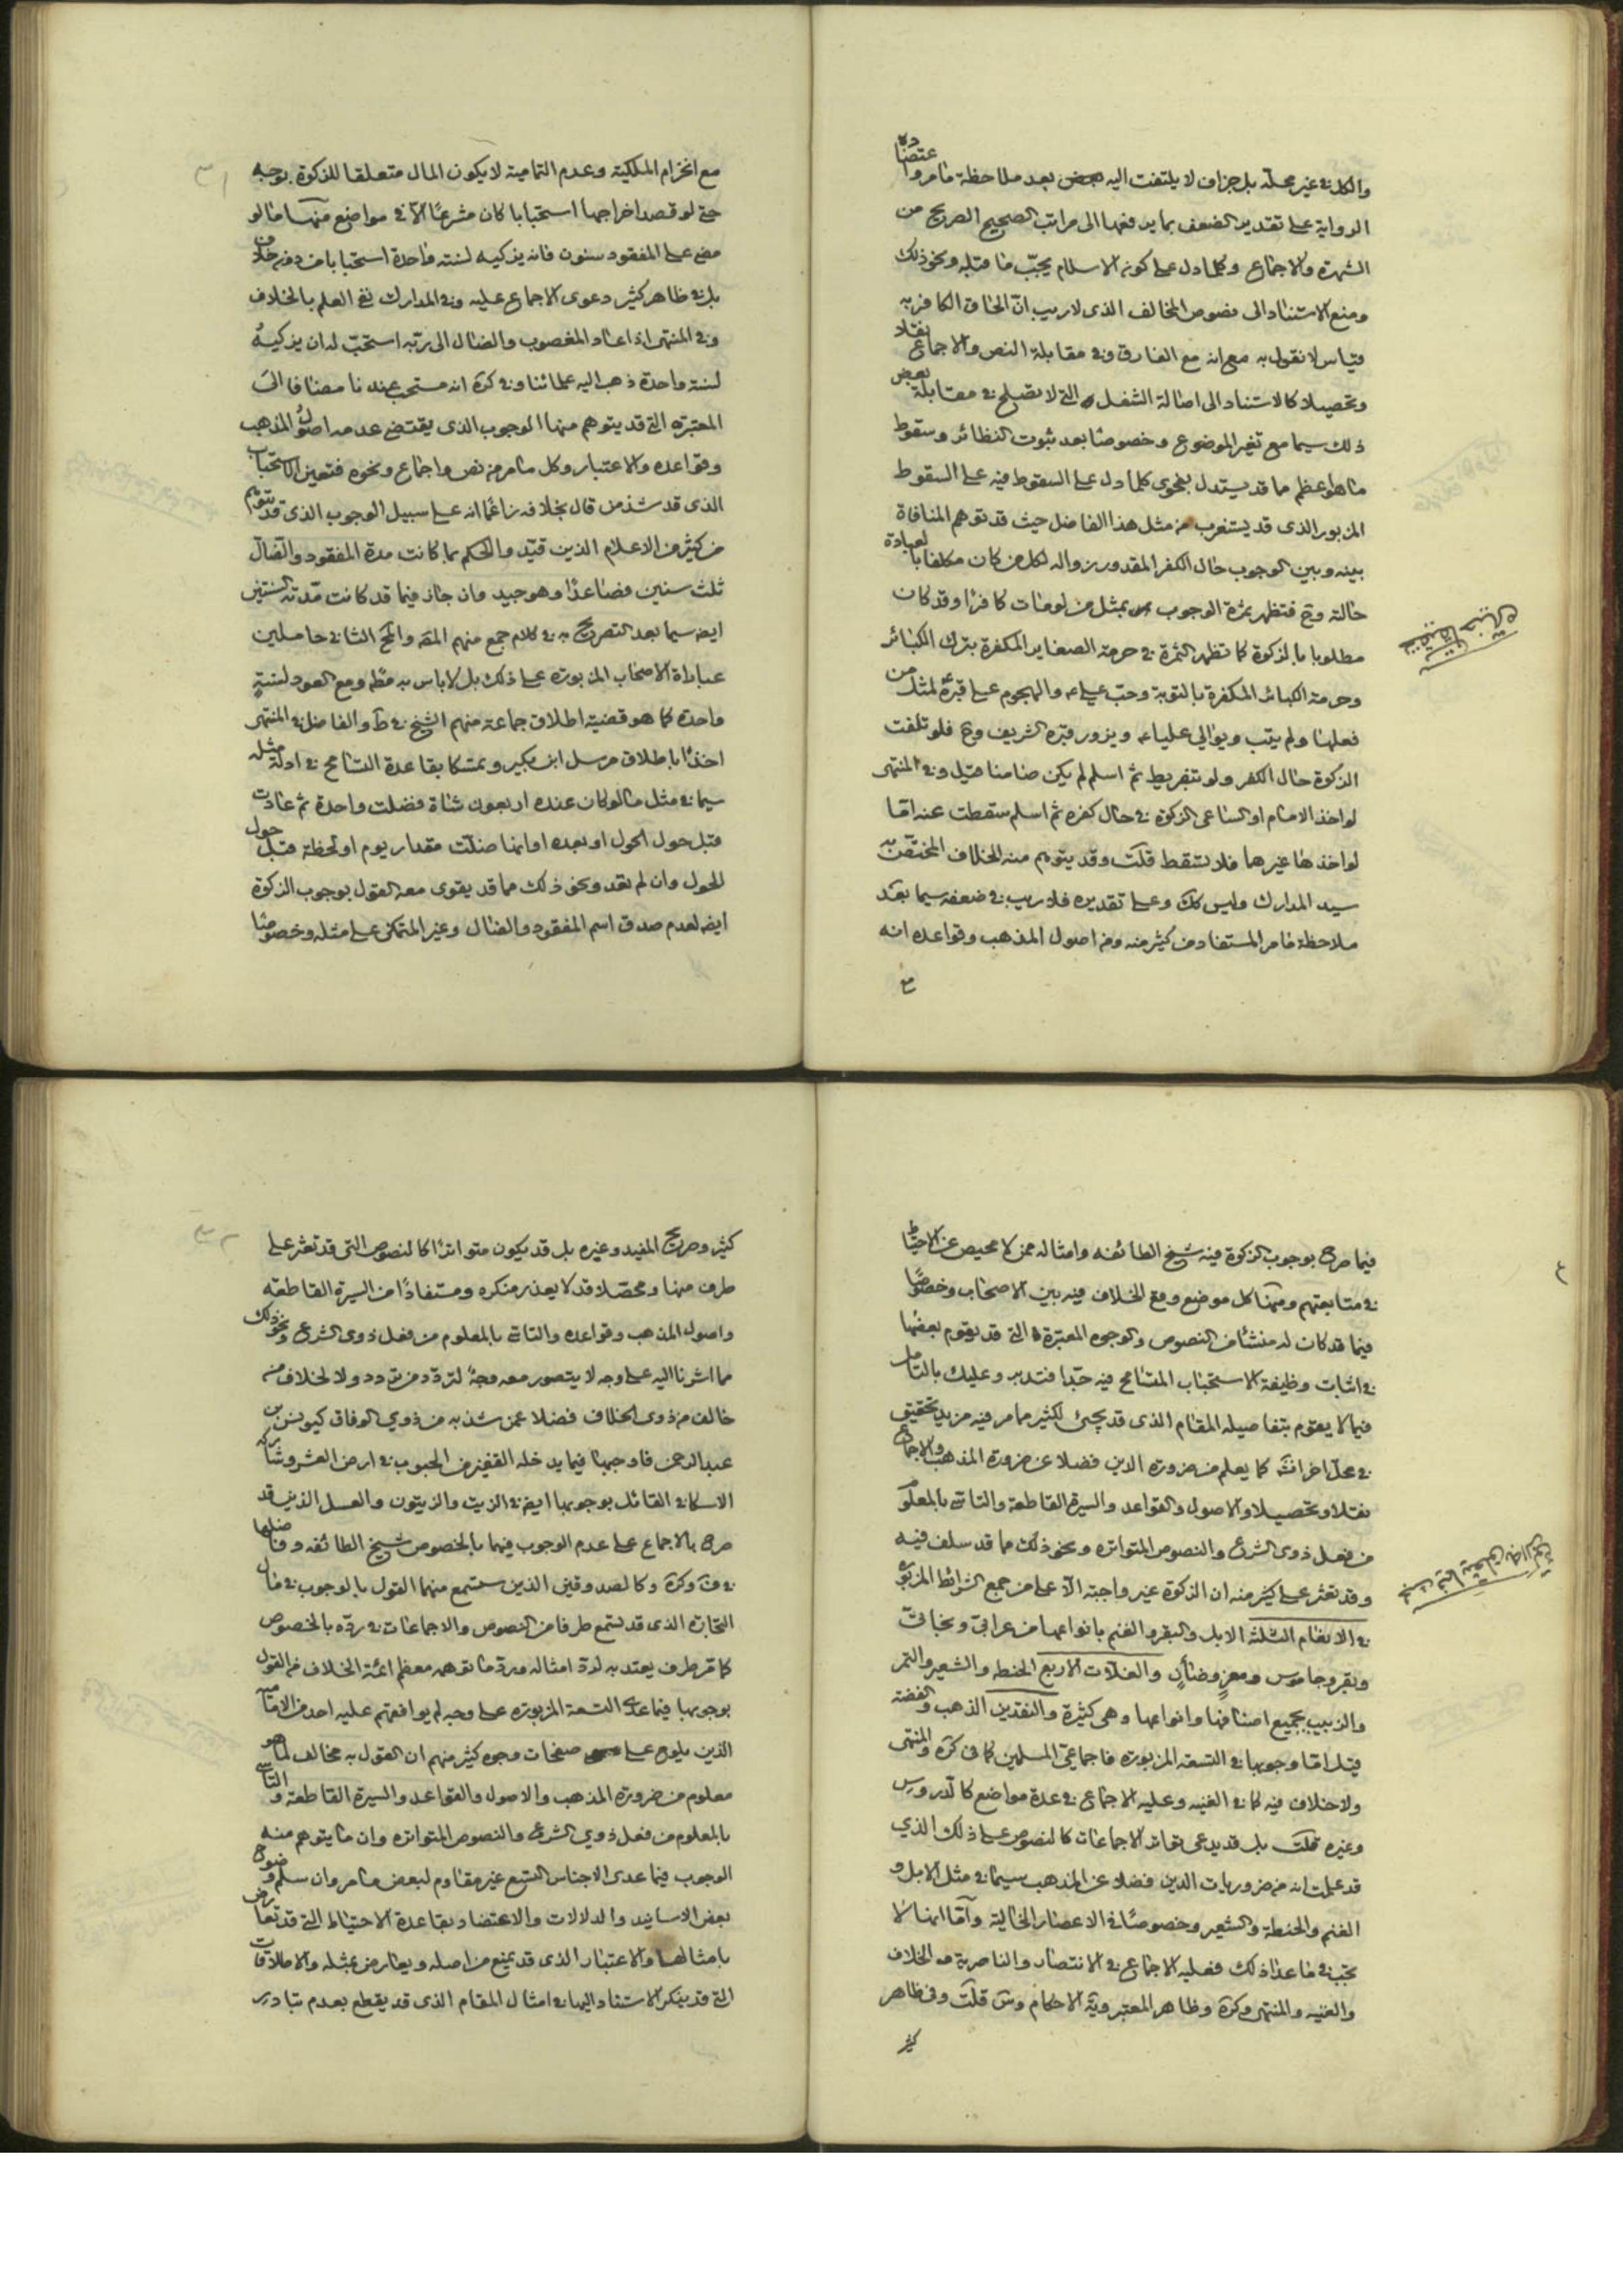 والكل في غير محله بل جزاف لا يلتفت اليه بعد ملاحظة مامر واعتضاده
الرواية على تقدير الضعف بما يرفعها الى مراتب الصحيح الصريح من
الشهرة والاجماع وكلما دل على كونه الاسلام يجب ما قبله ونحو ذلك
ومنع الاستناد الى نصوص المخالف الذى لا ريب ان الحاق الكافر به
قياس لا نقول به مع انه مع الفارق وفى مقابلة النص والاجماع نقلا
وتحصيلا كالاستناد الى اصالة الشغل التى لا تصلح فى مقابلة بعض
ذلك سيما مع تغير الموضوع وخصوصا بعد ثبوت النظائر وسقوط
ما هو اعظم مما قد يستدل بفحوى كلما دل على السقوط فيه على السقوط
المزبور الذى قد يستغرب من مثل هذا الفاضل حيث قد توهم المنافاة
بينه وبين الوجوب حال الكفر المقدور زواله لكل من كان مكلفا بالعبادة
حالته وح فتظهر ثمرة الوجوب بمثل من لو مات كافرا وقد كان
مطلوبا بالزكوة كما تظهر الثمرة فى حرمة الصغاير المكفرة بترك الكبائر
وحرمة الكبائر المكفرة بالتوبة وحب على ع والهجوم على قبره لمثل من
فعلها ولم يتب ويوالى عليا ع ويزور قبره الشريف وح فلو تلفت
الزكوة حال الكفر ولو بتفريط ثم اسلم لم يكن ضامنا قيل وفى المنتهى
لو اخذ الامام او الساعى الزكوة فى حال كفره ثم اسلم سقطت عنه اما
لو اخذها غيرهما فلا تسقط قلت وقد يتوهم منه الخلاف المختص به
سيد المدارك وليس كك وعلى تقديره فلا ريب فى ضعفه سيما بعد
ملاحظة مامر المستفاد من كثير منه ومن اصول المذهب وقواعده انه
مع
مع انخرام الملكية وعدم التمامية لا يكون المال متعلقا للزكوة بوجه
حتى لو قصد اخراجها استحبابا كان مشرعا الا فى مواضع منها ما لو
مضى على المفقود سنون فانه يزكيه لسنة واحدة استحبابا من دون خلاف
بل فى ظاهر كثير دعوى الاجماع عليه وفى المدارك نفى العلم بالخلاف
وفى المنتهى اذا عاد المغصوب والضال الى ربه استحب له ان يزكيه
لسنة واحدة ذهب اليه علمائنا وفى كرة انه مستحب عندنا مضافا الى
المعتبرة التى قد يتوهم منها الوجوب الذى يقتضى عدمه اصول المذهب
وقواعده والاعتبار وكل مامر من نص واجماع ونحوه فتعين الاستحباب
الذى قد شذ من قال بخلافه زاعما انه على سبيل الوجوب الذى قد يتوهم
من كثير من الاعلام الذين قيدوا الحكم بما كانت مدة المفقود والضال
ثلث سنين فصاعدا وهو جيد وان جاز فيما قد كانت مدته السنتين
ايضا سيما بعد التصريح به فى كلام جمع منهم المقه والمح الثانى حاملين
عباراة الاصحاب المزبورة على ذلك بل لا باس به مط ومع العود لسنة
واحدة كما هو قضية اطلاق جماعة منهم الشيخ فى ط والفاضل فى المنتهى
اخذا باطلاق مرسل ابن بكير وتمسكا بقاعدة التسامح فى ادلة مثله
سيما فى مثل ما لو كان عنده اربعون شاة فضلت واحدة ثم عادت
قبل حول الحول او بعده او انها ضلت مقدار يوم او لحظة قبل حول
الحول وان لم تعد ونحو ذلك مما قد يقوى معه القول بوجوب الزكوة
ايضا لعدم صدق اسم المفقود والضال وغير المتمكن على مثله وخصوصا
فيما صرح بوجوب الزكوة فيه شيخ الطائفه وامثاله ممن لا محيص عن الاحتياط
فى متابعتهم ومنها كل موضع وقع الخلاف فيه بين الاصحاب وخصوصا
فيما قد كان له منشئا من النصوص والوجوه المعتبرة التى قد يقوم بعضها
فى اثبات وظيفة الاستحباب المتسامح فيه جدا فتدبر وعليك بالتامل
فيما لا يقوم بتفاصيله المقام الذى قد يجئ لكثير مامر فيه مزيد تحقيق
فى محل اخر انش كما يعلم من ضرورة الدين فضلا عن ضرورة المذهب والاجماع
نقلا وتحصيلا والاصول والقواعد والسيرة القاطعة والتاسى بالمعلوم
من فعل ذوى الشرع والنصوص المتواتره ونحو ذلك مما قد سلف فيه
وقد تعثر على كثير منه ان الزكوة غير واجبة الا على من جمع الشرائط المزبورة
فى الانعام الثلثة الابل والبقر والغنم بانواعها من عرابى وبخاتى
وبقر وجاموس ومعز وضان والغلات الاربع الحنطه والشعير والتمر
والزبيب بجميع اصنافها وانواعها وهى كثيرة والنقدين الذهب والفضة
قيل اما وجوبها فى التسعه المزبورة فاجماعى المسلمين كما فى كرة والمنتهى
ولا خلاف فيه كما فى الغنيه وعليه الاجماع فى عدة مواضع كالدروس
وغيره قلت بل قد يدعى تواتر الاجماعات كالنصوص على ذلك الذي
قد علمت انه من ضروريات الدين فضلا عن المذهب سيما فى مثل الابل و
الغنم والحنطة والشعير وخصوصا فى الاعصار الخالية واما انها لا
تجب فى ما عدا ذلك فعليه الاجماع فى الانتصار والناصرية مه الخلاف
والغنيه والمنتهى وكرة وظاهر المعتبر وية الاحكام وس قلت وفى ظاهر
كثير
كثير وصريح المفيد وغيره بل قد يكون متواترا كالنصوص التى قد تعثر على
طرف منها ومحصلا قد لا يعذر منكره ومستفادا من السيرة القاطعه
واصول المذهب وقواعده والتاسى بالمعلوم من فعل ذوى الشرع ونحو ذلك
مما اشرنا اليه على وجه لا يتصور معه وجه لتردد من تردد ولا لخلاف من
خالف من ذوى الخلاف فضلا عمن شذ به من ذوي الوفاق كيونس بن
عبد الرحمن فاوجبها فيما يدخله القفيز من الحبوب فى ارض العشر وشاركه
الاسكافى القائل بوجوبها ايضا فى الزيت والزيتون والعسل الذين قد
صرح بالاجماع على عدم الوجوب فيهما بالخصوص شيخ الطائفه وفاضلها
فى ف وكرة وكالصدوقين الذين ستسمع منهما القول بالوجوب فى مال
التجارة الذى قد تسمع طرفا من النصوص والاجماعات فى رده بالخصوص
كما مر طرف يعتد به لرد امثاله ورد ما توهمه معظم ائمة الخلاف من القول
بوجوبها فيما عدا التسعة المزبورة على وجه لم يوافقهم عليه احد من الامامية
الذين يلوح على صفحات وجوه كثير منهم ان القول به مخالف لما هو
معلوم من ضرورة المذهب والاصول والقواعد والسيرة القاطعة والتاسى
بالمعلوم من فعل ذوي الشرع والنصوص المتواتره وان ما يتوهم منه
الوجوب فيما عدى الاجناس التسع غير مقاوم لبعض مامر وان سلم وضوح
بعض الاسانيد والدلالات والاعتضاد بقاعدة الاحتياط التى قد تعارض
بامثالها والاعتبار الذى قد يمنع من اصله ويعارض بمثله والاطلاقات
التى قد ينكر الاستناد اليها فى امثال المقام الذى قد يقطع بعدم تبادر